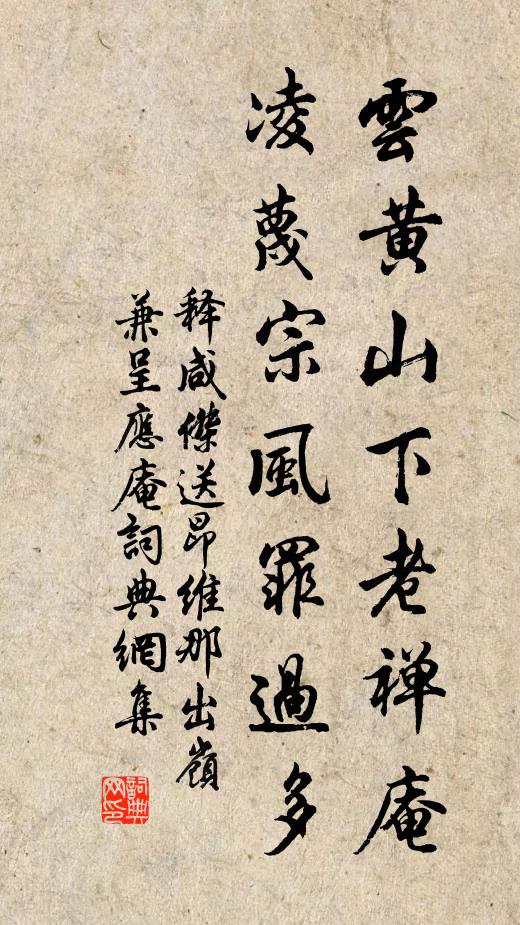 雲黄山下老禅庵
凌蔑宗風罪過多
释咸傑送昂維那出嶺
兼呈應庵詞典網集
詞典
网印